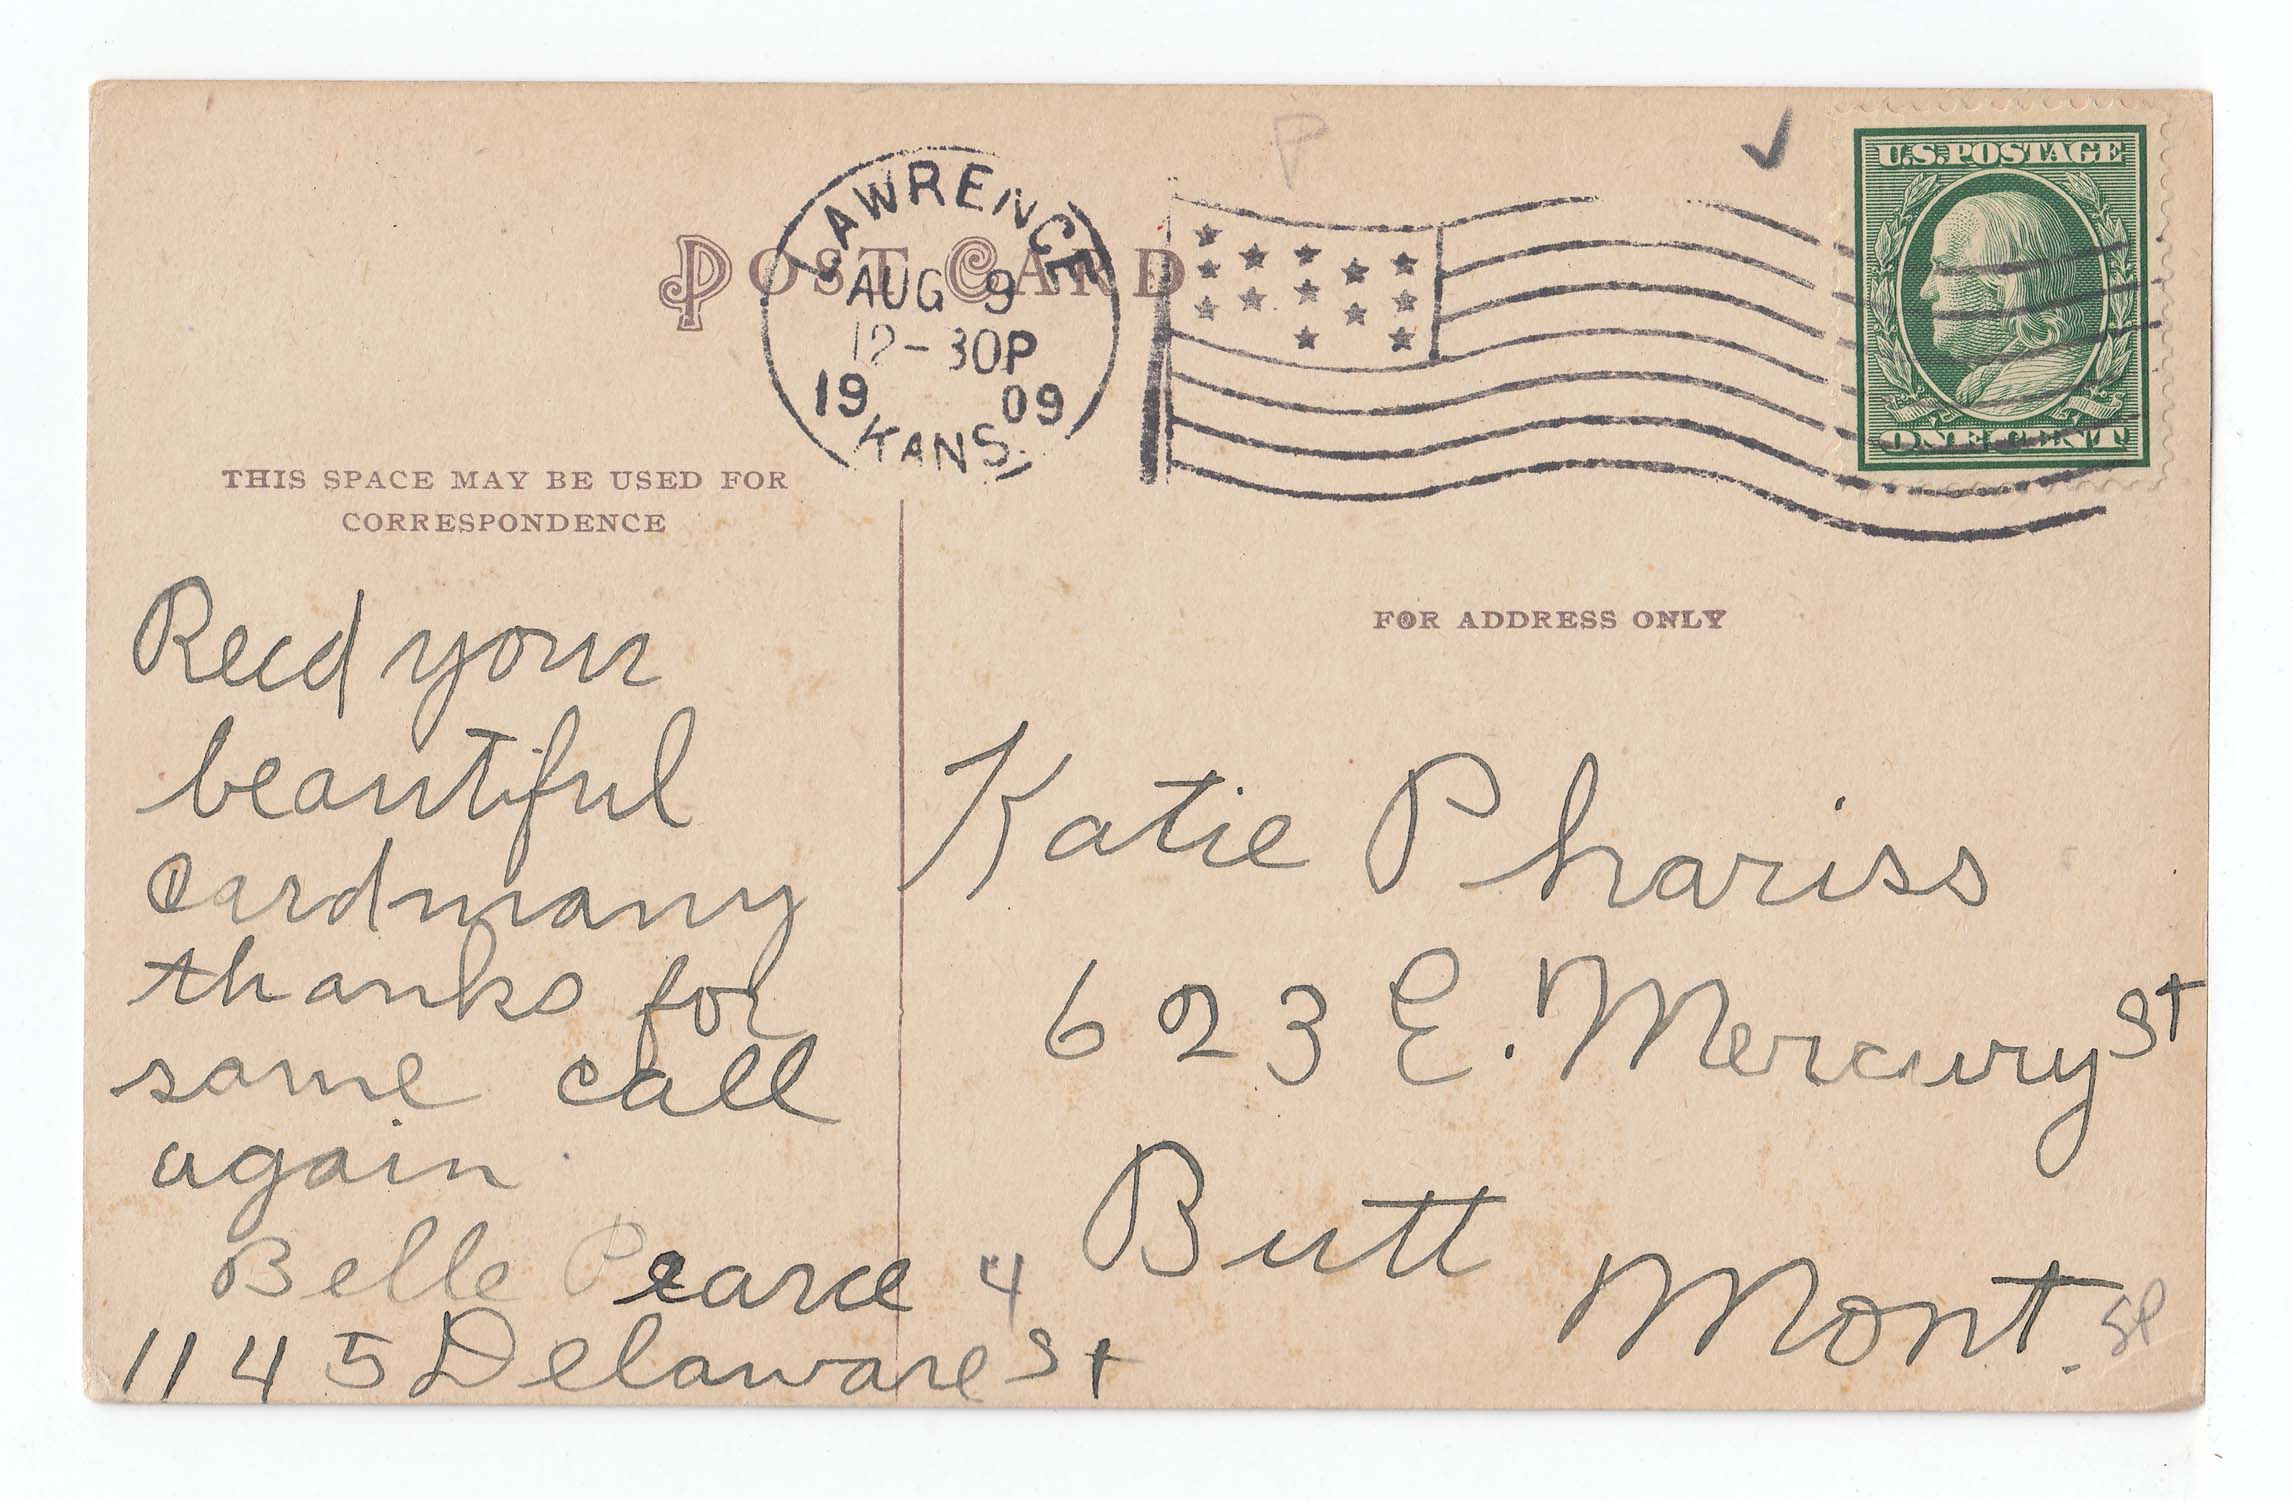 POST CARD
LAWRENCE
AUG 9
12-30P
19 09
KANS.
P
U.S. POSTAGE
ONE CENT
THIS SPACE MAY BE USED FOR
CORRESPONDENCE
Recd your
beautiful
card many
thanks for
same call
again
Belle Pearce
1145 Delaware St
4
FOR ADDRESS ONLY
Katie Phariss
623 E. Mercury St
Butt
Mont.